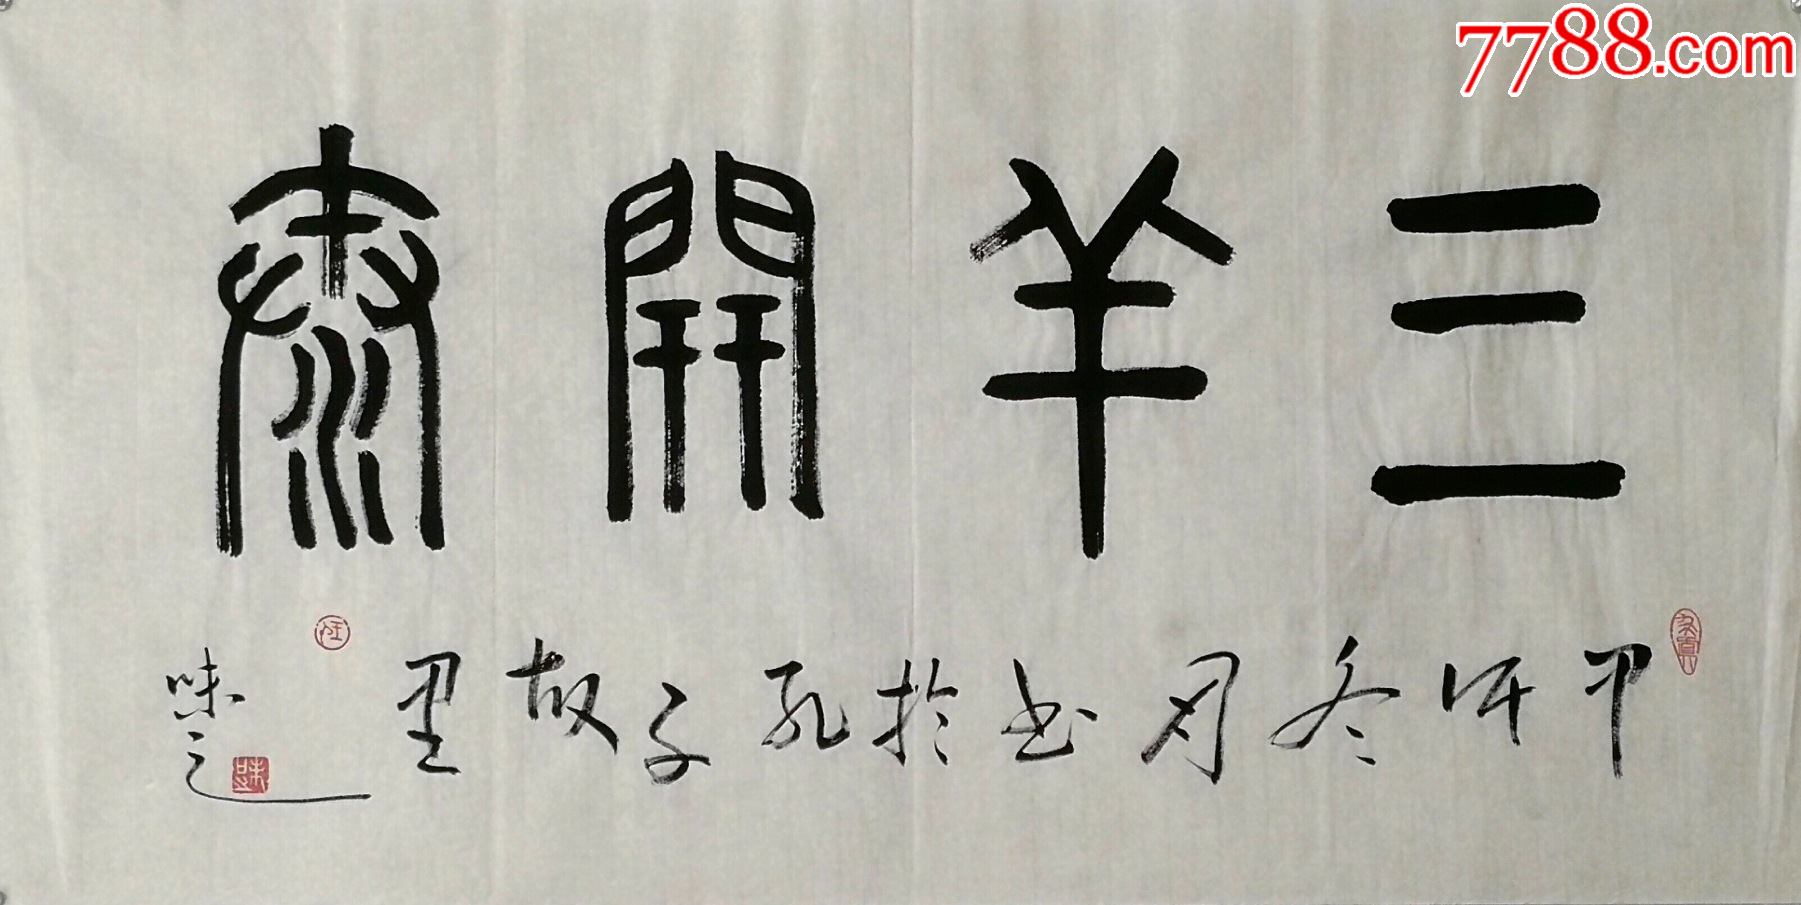 7788.com
三羊開泰
甲午冬月书於孔子故里
味之